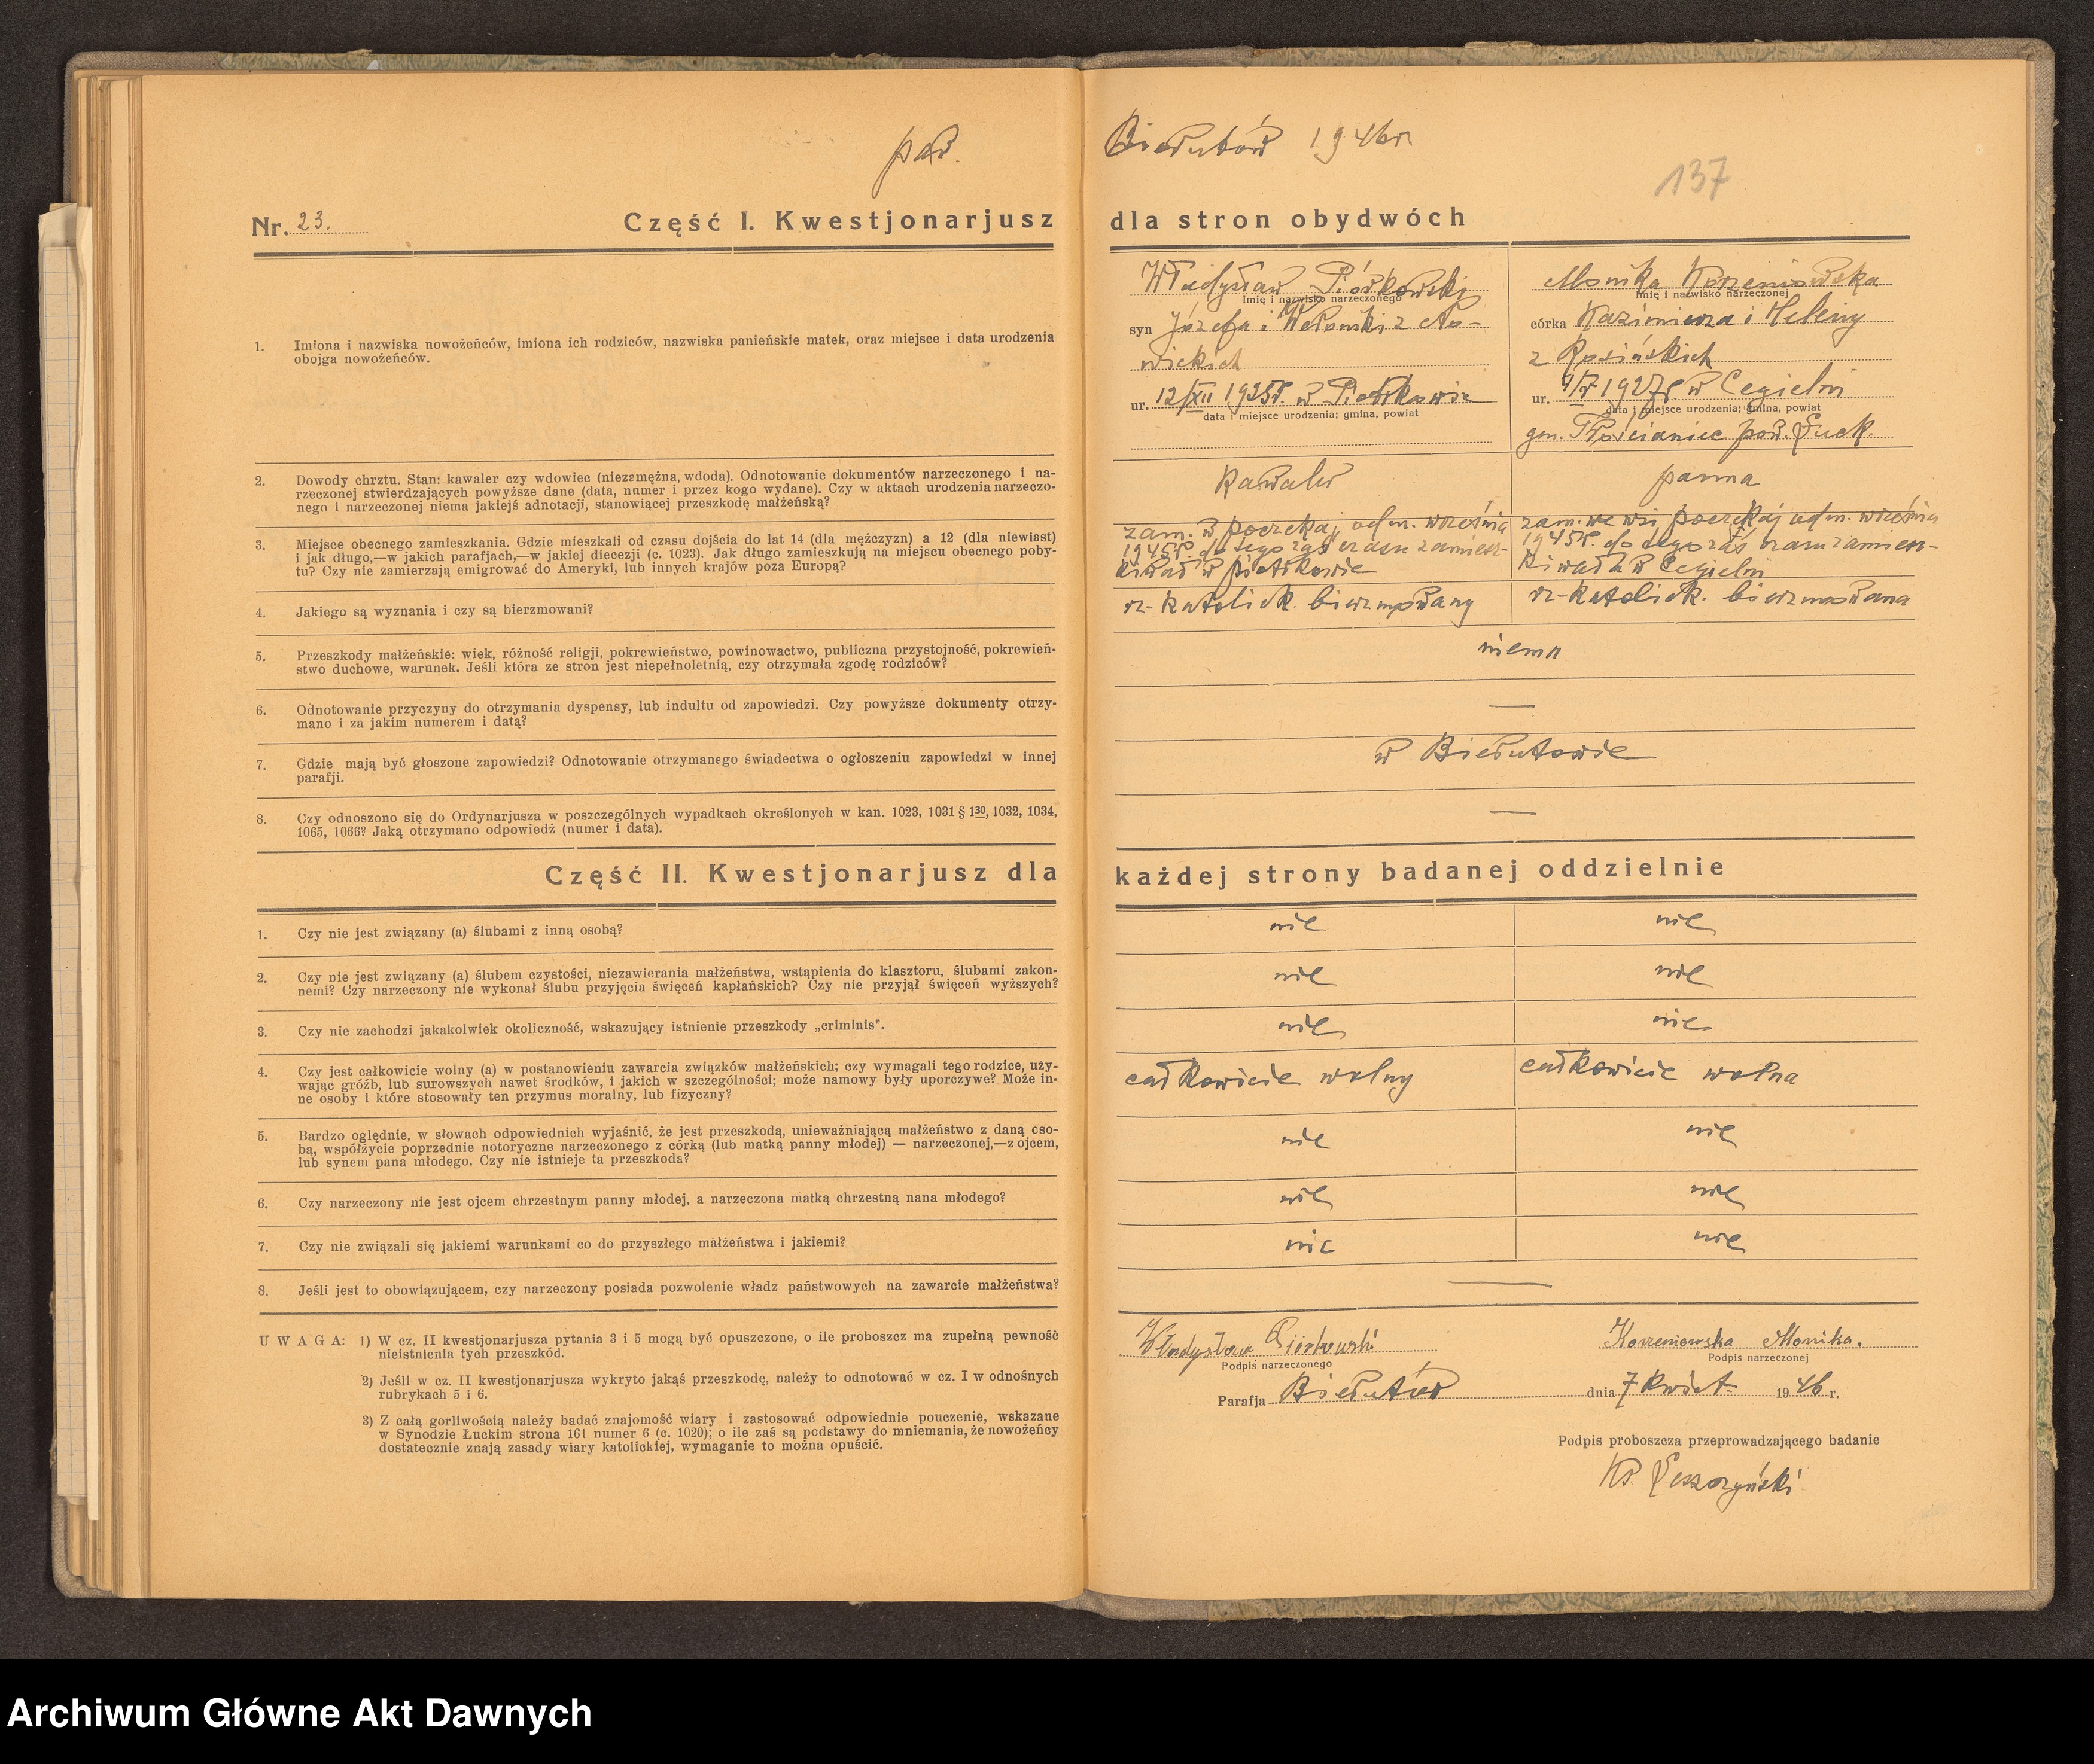 par. Bierutów 1946r.
137
Nr. 23. Część I. Kwestjonarjusz dla stron obydwóch
1. Imiona i nazwiska nowożeńców, imiona ich rodziców, nazwiska panieńskie matek, oraz miejsce i data urodzenia
obojga nowożeńców.
Władysław Piórkowski
Imię i nazwisko narzeczonego
syn Józefa i Weroniki z No-
wickich
ur. 12/XII 1925r. w Piotrkowie
data i miejsce urodzenia; gmina, powiat
Monika Korzeniowska
Imię i nazwisko narzeczonej
córka Kazimierza i Heleny
z Rosińskich
ur. 1927r w Cegielni
data i miejsce urodzenia; gmina, powiat
gm. pow. Łuck.
2. Dowody chrztu. Stan: kawaler czy wdowiec (niezamężna, wdoda). Odnotowanie dokumentów narzeczonego i na-
rzeczonej stwierdzających powyższe dane (data, numer i przez kogo wydane). Czy w aktach urodzenia narzeczo-
nego i narzeczonej niema jakiejś adnotacji, stanowiącej przeszkodę małżeńską?
kawaler
panna
3. Miejsce obecnego zamieszkania. Gdzie mieszkali od czasu dojścia do lat 14 (dla mężczyzn) a 12 (dla niewiast)
i jak długo,—w jakich parafjach,—w jakiej diecezji (c. 1023). Jak długo zamieszkują na miejscu obecnego poby-
tu? Czy nie zamierzają emigrować do Ameryki, lub innych krajów poza Europą?
zam. w od m. września
1945r. do tego zaś czasu zamiesz-
kiwał w Piotrkowie
zam. we wsi od m. września
1945r. do tego zaś czasu zamiesz-
kiwała w Cegielni
4. Jakiego są wyznania i czy są bierzmowani?
rz-katolick. bierzmowany
rz-katolick. bierzmowana
5. Przeszkody małżeńskie: wiek, różność religji, pokrewieństwo, powinowactwo, publiczna przystojność, pokrewień-
stwo duchowe, warunek. Jeśli która ze stron jest niepełnoletnią, czy otrzymała zgodę rodziców?
niema
6. Odnotowanie przyczyny do otrzymania dyspensy, lub indultu od zapowiedzi. Czy powyższe dokumenty otrzy-
mano i za jakim numerem i datą?
—
7. Gdzie mają być głoszone zapowiedzi? Odnotowanie otrzymanego świadectwa o ogłoszeniu zapowiedzi w innej
parafji.
w Bierutowie
8. Czy odnoszono się do Ordynarjusza w poszczególnych wypadkach określonych w kan. 1023, 1031 § 1 30, 1032, 1034,
1065, 1066? Jaką otrzymano odpowiedź (numer i data).
—
Część II. Kwestjonarjusz dla każdej strony badanej oddzielnie
1. Czy nie jest związany (a) ślubami z inną osobą?
nie nie
2. Czy nie jest związany (a) ślubem czystości, niezawierania małżeństwa, wstąpienia do klasztoru, ślubami zakon-
nemi? Czy narzeczony nie wykonał ślubu przyjęcia święceń kapłańskich? Czy nie przyjął święceń wyższych?
nie nie
3. Czy nie zachodzi jakakolwiek okoliczność, wskazujący istnienie przeszkody „criminis".
nie nie
4. Czy jest całkowicie wolny (a) w postanowieniu zawarcia związków małżeńskich; czy wymagali tego rodzice, uży-
wając gróźb, lub surowszych nawet środków, i jakich w szczególności; może namowy były uporczywe? Może in-
ne osoby i które stosowały ten przymus moralny, lub fizyczny?
całkowicie wolny całkowicie wolna
5. Bardzo oględnie, w słowach odpowiednich wyjaśnić, że jest przeszkodą, unieważniającą małżeństwo z daną oso-
bą, współżycie poprzednie notoryczne narzeczonego z córką (lub matką panny młodej) — narzeczonej,—z ojcem,
lub synem pana młodego. Czy nie istnieje ta przeszkoda?
nie nie
6. Czy narzeczony nie jest ojcem chrzestnym panny młodej, a narzeczona matką chrzestną nana młodego?
nie nie
7. Czy nie związali się jakiemi warunkami co do przyszłego małżeństwa i jakiemi?
nie nie
8. Jeśli jest to obowiązującem, czy narzeczony posiada pozwolenie władz państwowych na zawarcie małżeństwa?
—
UWAGA: 1) W cz. II kwestjonarjusza pytania 3 i 5 mogą być opuszczone, o ile proboszcz ma zupełną pewność
nieistnienia tych przeszkód.
2) Jeśli w cz. II kwestjonarjusza wykryto jakąś przeszkodę, należy to odnotować w cz. I w odnośnych
rubrykach 5 i 6.
3) Z całą gorliwością należy badać znajomość wiary i zastosować odpowiednie pouczenie, wskazane
w Synodzie Łuckim strona 161 numer 6 (c. 1020); o ile zaś są podstawy do mniemania, że nowożeńcy
dostatecznie znają zasady wiary katolickiej, wymaganie to można opuścić.
Władysław Piórkowski
Podpis narzeczonego
Korzeniowska Monika.
Podpis narzeczonej
Parafja Bierutów dnia 7 kwiet. 1946 r.
Podpis proboszcza przeprowadzającego badanie
Ks. Leszczyński
Archiwum Główne Akt Dawnych